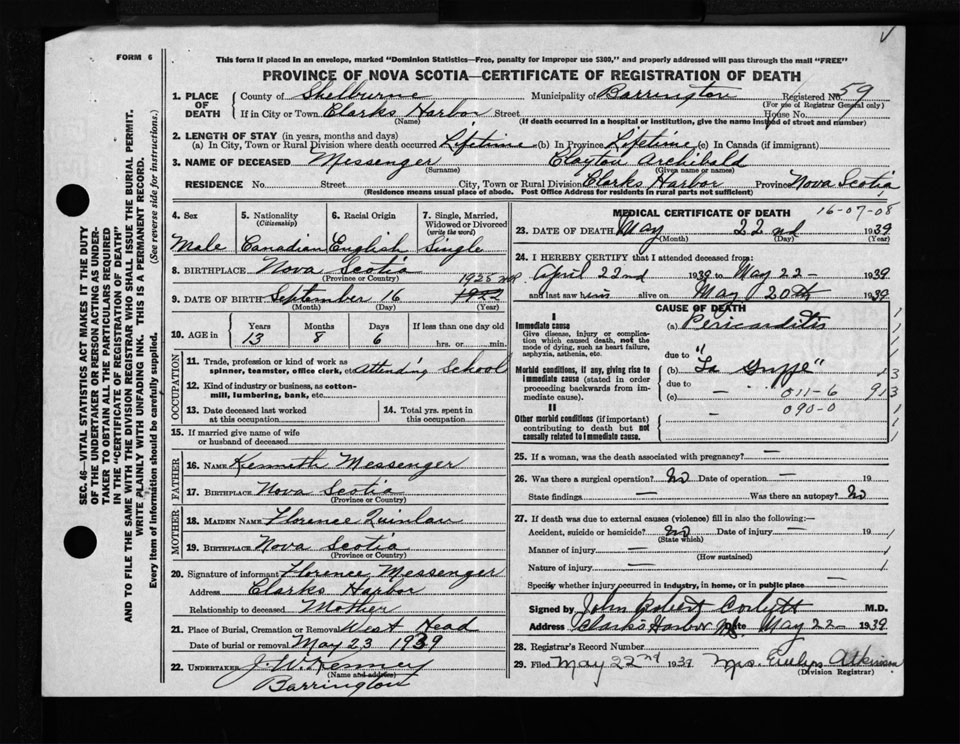 FORM 6
This form if placed in an envelope, marked "Dominion Statistics—Free, penalty for improper use $300," and properly addressed will pass through the mail "FREE"
PROVINCE OF NOVA SCOTIA—CERTIFICATE OF REGISTRATION OF DEATH
1. PLACE OF DEATH County of Shelburne Municipality of Barrington Registered No. 59
(For use of Registrar General only)
If in City or Town Clarks Harbor Street House No.
(Name) (If death occurred in a hospital or institution, give the name instead of street and number)
2. LENGTH OF STAY (in years, months and days)
(a) In City, Town or Rural Division where death occurred Lifetime (b) In Province Lifetime (c) In Canada (if immigrant)
3. NAME OF DECEASED Messenger Clayton Archibald
(Surname) (Given name or names)
RESIDENCE No. Street City, Town or Rural Division Clarks Harbor Province Nova Scotia
(Residence means usual place of abode. Post Office Address for residents in rural parts not sufficient)
SEC. 46—VITAL STATISTICS ACT MAKES IT THE DUTY
OF THE UNDERTAKER OR PERSON ACTING AS UNDER-
TAKER TO OBTAIN ALL THE PARTICULARS REQUIRED
IN THE "CERTIFICATE OF REGISTRATION OF DEATH"
AND TO FILE THE SAME WITH THE DIVISION REGISTRAR WHO SHALL ISSUE THE BURIAL PERMIT.
WRITE PLAINLY WITH UNFADING INK. THIS IS A PERMANENT RECORD.
Every item of information should be carefully supplied. (See reverse side for instructions.)
4. Sex 5. Nationality 6. Racial Origin 7. Single, Married,
(Citizenship) Widowed or Divorced
(write the word)
Male Canadian English Single
8. BIRTHPLACE Nova Scotia
(Province or Country)
1925
9. DATE OF BIRTH September 16 1922
(Month) (Day) (Year)
10. AGE in Years Months Days If less than one day old
13 8 6 hrs. or min.
OCCUPATION
11. Trade, profession or kind of work as
spinner, teamster, office clerk, etc. Attending School
12. Kind of industry or business, as cotton-
mill, lumbering, bank, etc.
13. Date deceased last worked
at this occupation
14. Total yrs. spent in
this occupation
15. If married give name of wife
or husband of deceased
FATHER
16. NAME Kenneth Messenger
17. BIRTHPLACE Nova Scotia
(Province or Country)
MOTHER
18. MAIDEN NAME Florence Quinlan
19. BIRTHPLACE Nova Scotia
(Province or Country)
20. Signature of informant Florence Messenger
Address Clarks Harbor
Relationship to deceased Mother
21. Place of Burial, Cremation or Removal West Head
Date of burial or removal May 23 1939
22. UNDERTAKER J. W. Kenney
(Name and address)
Barrington
MEDICAL CERTIFICATE OF DEATH
16-07-08
23. DATE OF DEATH May 22nd 1939
(Month) (Day) (Year)
24. I HEREBY CERTIFY that I attended deceased from:
April 22nd 1939 to May 22 - 1939
and last saw him alive on May 20th 1939
CAUSE OF DEATH
I
Immediate cause
Give disease, injury or complica-
tion which caused death, not the
mode of dying, such as heart failure,
asphyxia, asthenia, etc.
(a) Pericarditis
due to
Morbid conditions, if any, giving rise to
immediate cause (stated in order
proceeding backwards from im-
mediate cause).
(b) "La Grippe"
due to
(c) 011-6 913
090-0
II
Other morbid conditions (if important)
contributing to death but not
causally related to immediate cause.
25. If a woman, was the death associated with pregnancy? —
26. Was there a surgical operation? No Date of operation — 19
State findings — Was there an autopsy? No
27. If death was due to external causes (violence) fill in also the following:—
Accident, suicide or homicide? No Date of injury — 19
(State which)
Manner of injury —
(How sustained)
Nature of injury —
Specify whether injury occurred in industry, in home, or in public place —
Signed by John Robert Corbett M.D.
Address Clarks Harbor NS. Date May 22 - 1939
28. Registrar's Record Number
29. Filed May 22nd 1939 Mrs. Evelyn Atkinson
(Division Registrar)